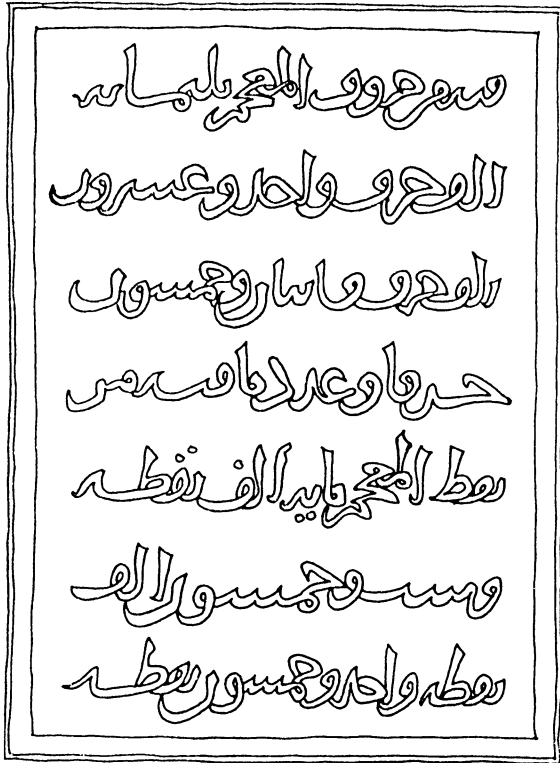 فيه من حروف المعجم ثلثمايه
الف حرف وواحد وعشرون
الف حرف وماتان وخمسون
حرفا وعدد ما فيه من
نقط المعجم مايه الف نقطه
وست وخمسون الف
نقطه واحد وخمسون نقطه